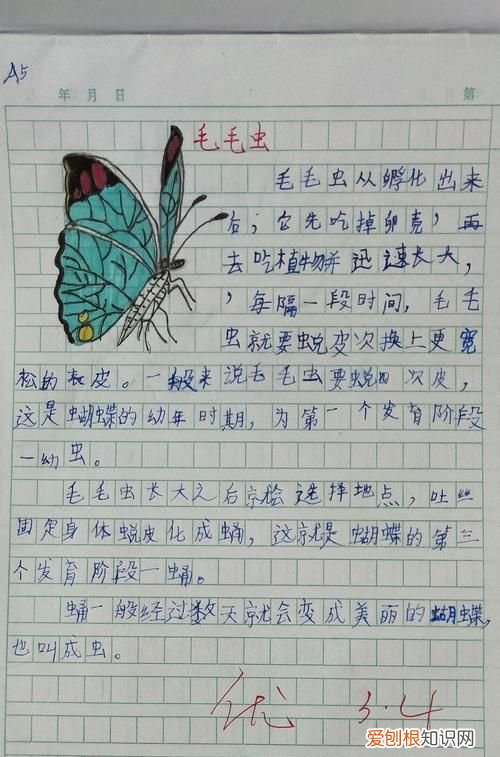 A5
年 月 日
第
毛毛虫
毛毛虫从孵化出来
后，它先吃掉卵壳，再
去吃植物并迅速长大，
，每隔一段时间，毛毛
虫就要蜕皮次换上更宽
松的表皮。一般来说毛毛虫要蜕四次皮，
这是蝴蝶的幼年时期，为第一个发育阶段
一幼虫。
毛毛虫长大之后就会选择地点，吐丝
固定身体蜕皮化成蛹，这就是蝴蝶的第三
个发育阶段一蛹。
蛹一般经过数天就会变成美丽的蝴蝶，
也叫成虫。
优 3.4
爱刨根知识网